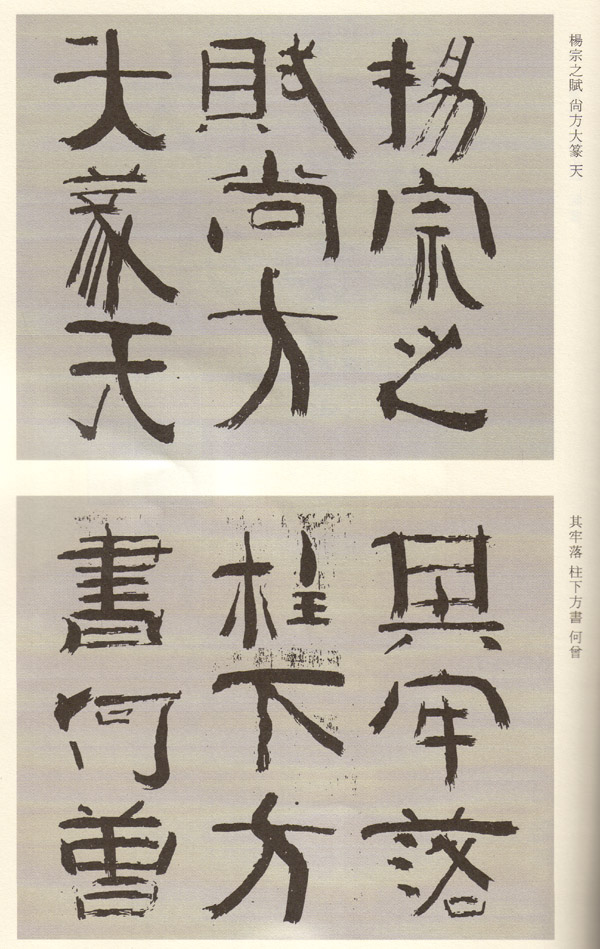 楊宗之賦 尙方大篆 天
楊宗之
賦尙方
大篆天
其牢落 柱下方書 何曾
其牢落
柱下方
書何曾